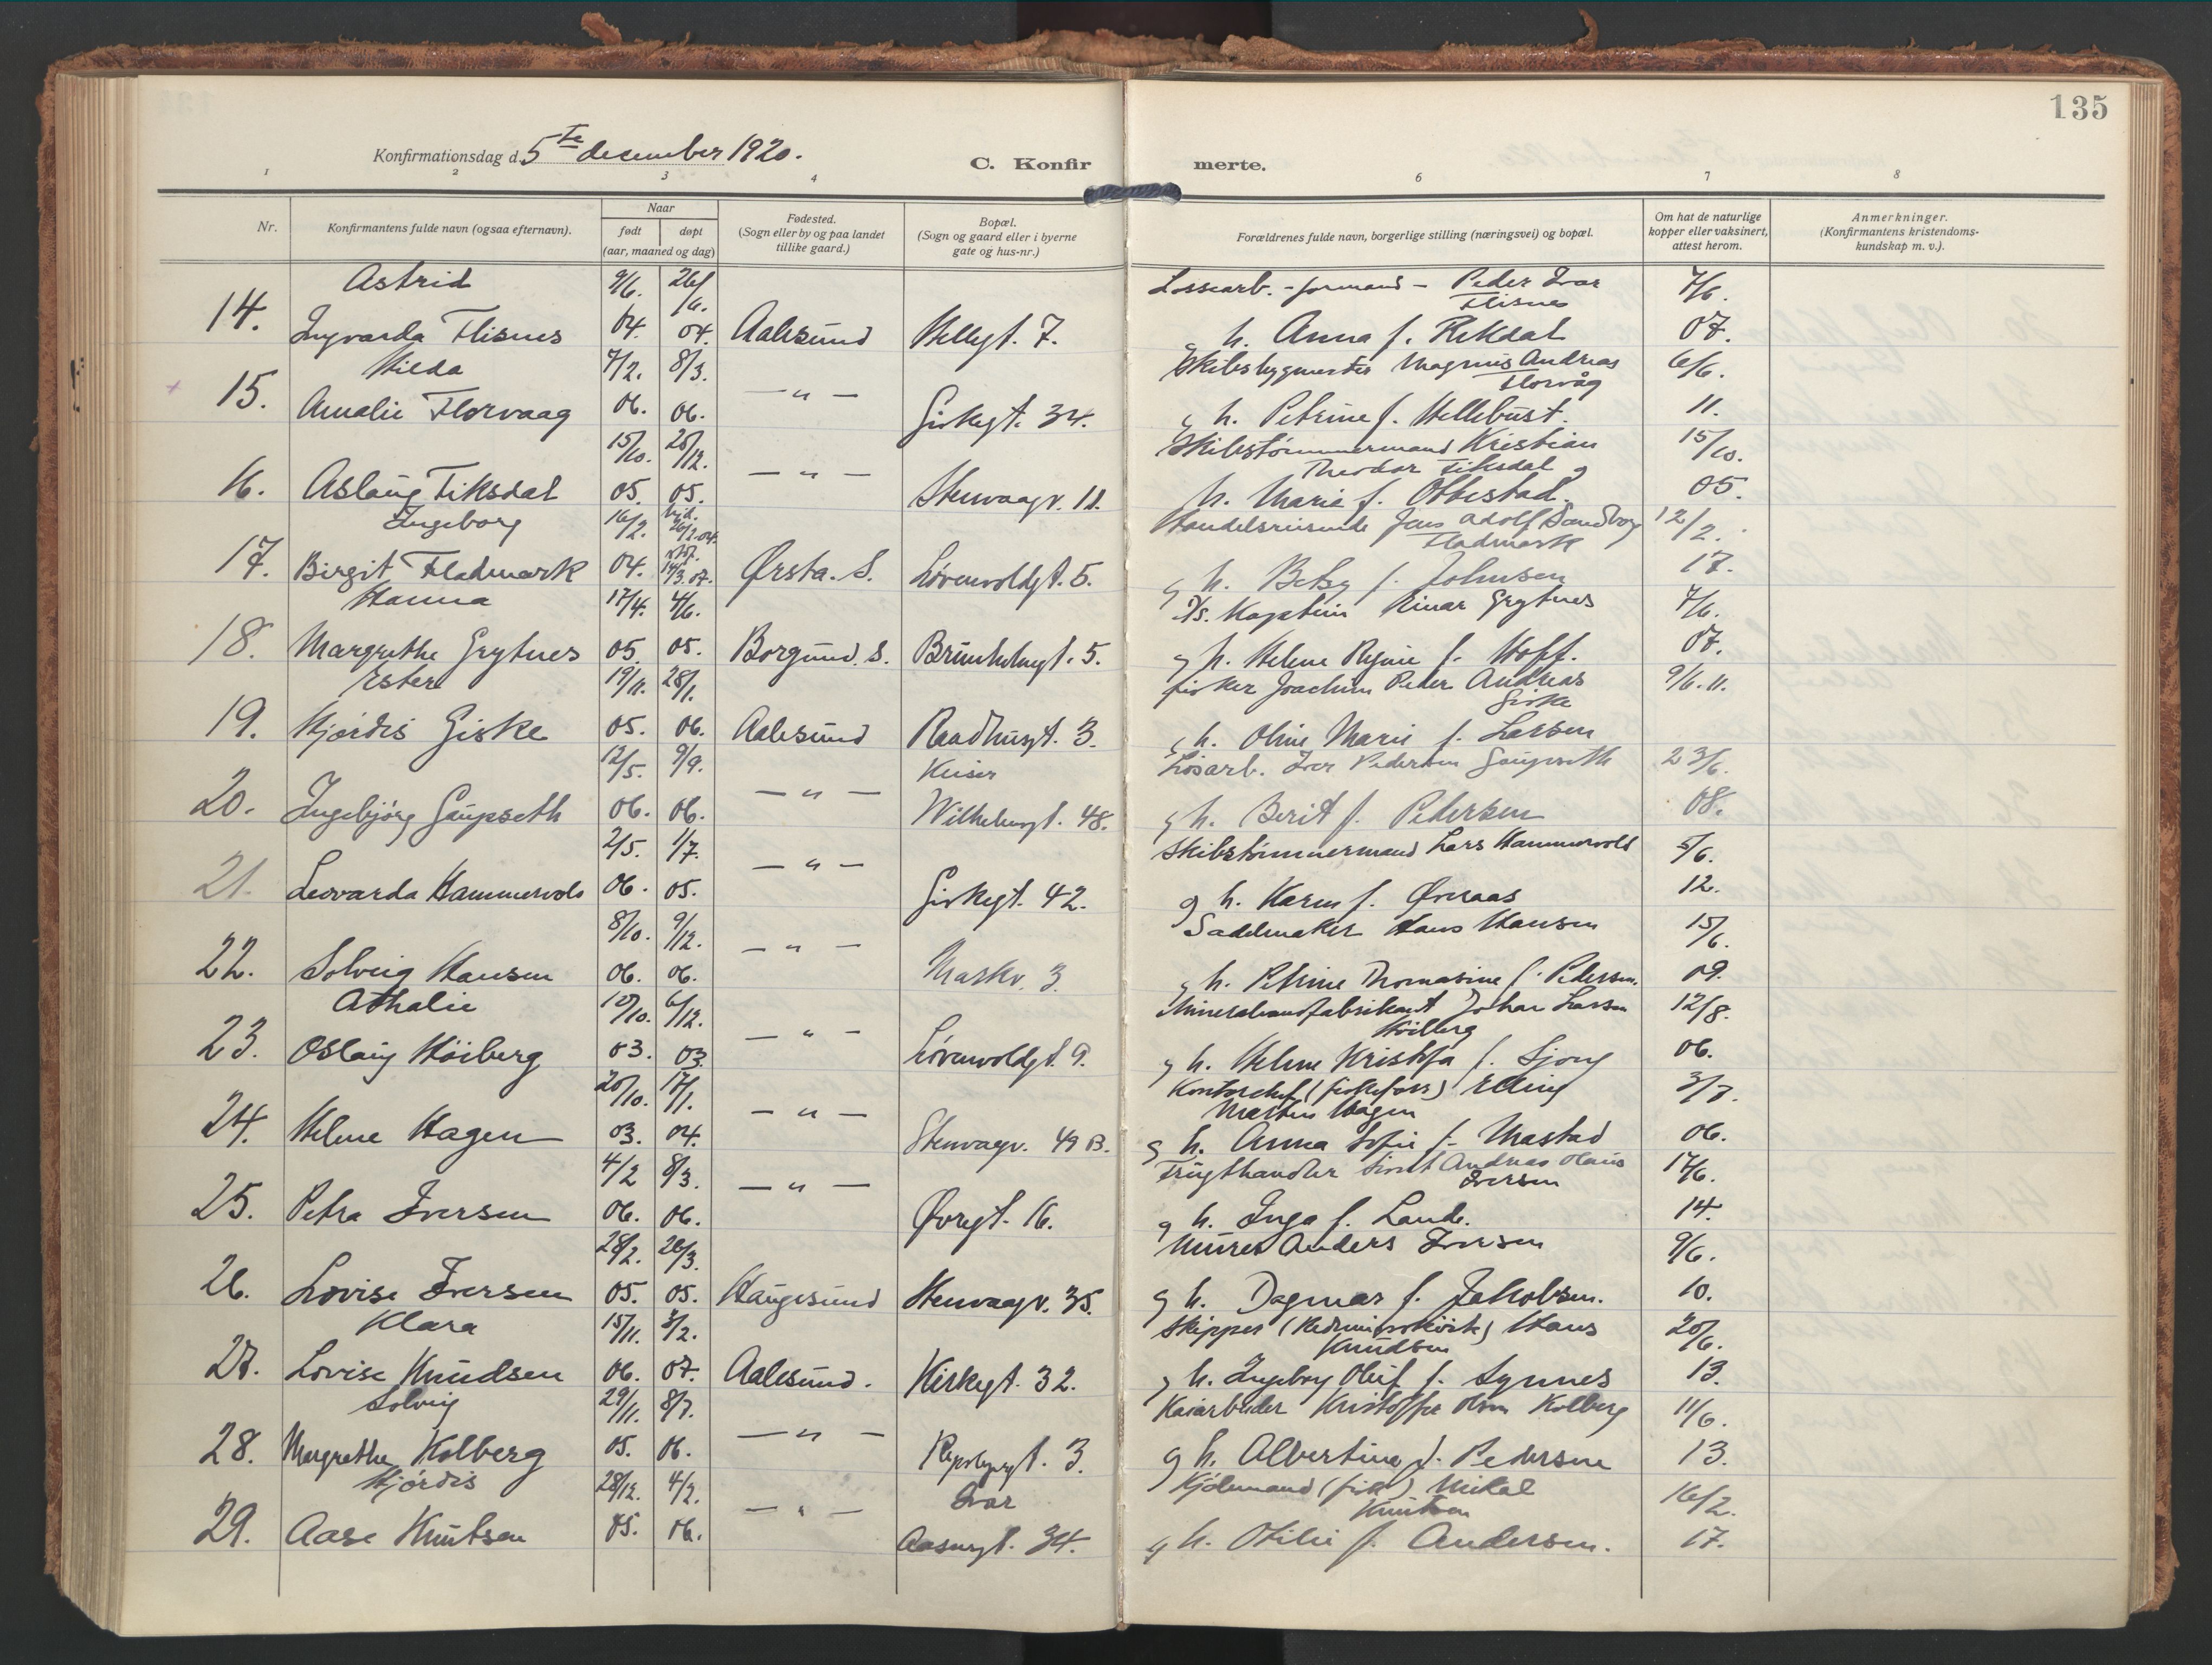 135
Konfirmationsdag d. 5te december 1920.
C. Konfir
merte.
1 2 3 4 6 7 8
Nr.
Konfirmantens fulde navn (ogsaa efternavn).
Naar
født
døpt
(aar, maaned og dag)
Fødested.
(Sogn eller by og paa landet
tillike gaard.)
Bopæl.
(Sogn og gaard eller i byerne
gate og hus-nr.)
Forældrenes fulde navn, borgerlige stilling (næringsvei) og bopæl.
Om hat de naturlige
kopper eller vaksinert,
attest herom.
Anmerkninger.
(Konfirmantens kristendoms-
kundskap m. v.).
Astrid 9/6. 26/6. Lossearb.-formand - Peder Ivar 7/6.
Flisnes
14. Ingvarda Flisnes 04. 04. Aalesund Hellegt. 7. g h. Anna f. Rekdal 07.
Hilda 7/2. 8/3. Skibsbygmester Magnus Andreas 6/6.
Florvåg
15. Amalie Florvaag 06. 06. — " — Giskegt. 34. g h. Petrine f. Hellebust. 11.
15/10. 25/12. Skibstømmermand Kristian 15/10.
Theodor Fiksdal g
16. Aslaug Fiksdal 05. 05. — " — Stenvaagv. 11. h. Marie f. Obbestad. 05.
Ingeborg 16/2. hjd. 26/2.04. Handelsreisende Jens Adolf Sandborg 12/2.
Fladmark
17. Birgit Fladmark 04. 14/3.07. Ørsta. S. Løvenvoldgt. 5. g h. Betsy f. Johnsen 17.
Hanna 17/4. 4/6. D/s. Kaptein Einar Grytnes 7/6.
18. Margrethe Grytnes 05. 05. Borgund. S. Brunholmgt. 5. g h. Helene Regine f. Hoff. 07.
Ester 19/11. 28/1. fisker Joachim Peder Andreas 9/6.11.
Giske
19. Hjørdis Giske 05. 06. Aalesund Raadhusgt. 3. g h. Oline Marie f. Larsen
12/5. 9/9. Keiser Løsarb. Iver Pedersen Gaupseth 23/6.
20. Ingebjørg Gaupseth 06. 06. — " — Wilhelmsgt. 48. g h. Berit f. Pedersen 08.
2/5. 1/7. Skibstømmermand Lars Hammervold 5/6.
21. Leovarda Hammervold 06. 05. — " — Giskegt. 42. g h. Karen f. Øveraas 12.
8/10. 9/12. Sadelmaker Hans Hansen 15/6.
22. Solveig Hansen 06. 06. — " — Markv. 3. g h. Petrine Thomasine f. Pedersen. 09.
Athalie 10/10. 6/12. Mineralvandfabrikant Johan Larsen 12/8.
Höiberg
23. Oslaug Höiberg 03. 03. — " — Løvenvoldgt. 9. g h. Helene Kristofa f. Sjong 06.
20/10. 17/1. Kontorchef Elling 3/7.
Martin Hagen
24. Helene Hagen 03. 04. — " — Stenvagv. 49 B. g h. Anna Sofie f. Mastad 06.
4/2 8/3. Frugthandler Sivert Andreas Olaus 17/6.
Iversen
25. Petra Iversen 06. 06. — " — Øvregt. 16. g h. Inga f. Lande. 14.
28/2. 26/3. Murer Anders Iversen 9/6.
26. Lovise Iversen 05. 05. Haugesund Stenvaagv. 35. g h. Dagmar f. Jakobsen. 10.
Klara 15/11. 3/2. Skipper Hans 20/6.
Knudsen
27. Lovise Knudsen 06. 07. Aalesund. Kirkegt. 32. g h. Ingeborg Oluf f. Synnes 13.
Solveig 29/11. 8/7. Kaiarbeider Kristoffer Olsen Kolberg 11/6.
28. Margrethe Kolberg 05. 06. — " — Repslagergt. 3. g h. Albertine f. Pedersen 13.
Hjördis 28/12. 4/2. Ivar Kjölemand (fisk) Mikal 16/2.
Knutsen
29. Aase Knutsen 05. 06. — " — Aasensgt. 34. g h. Otilie f. Andersen. 17.